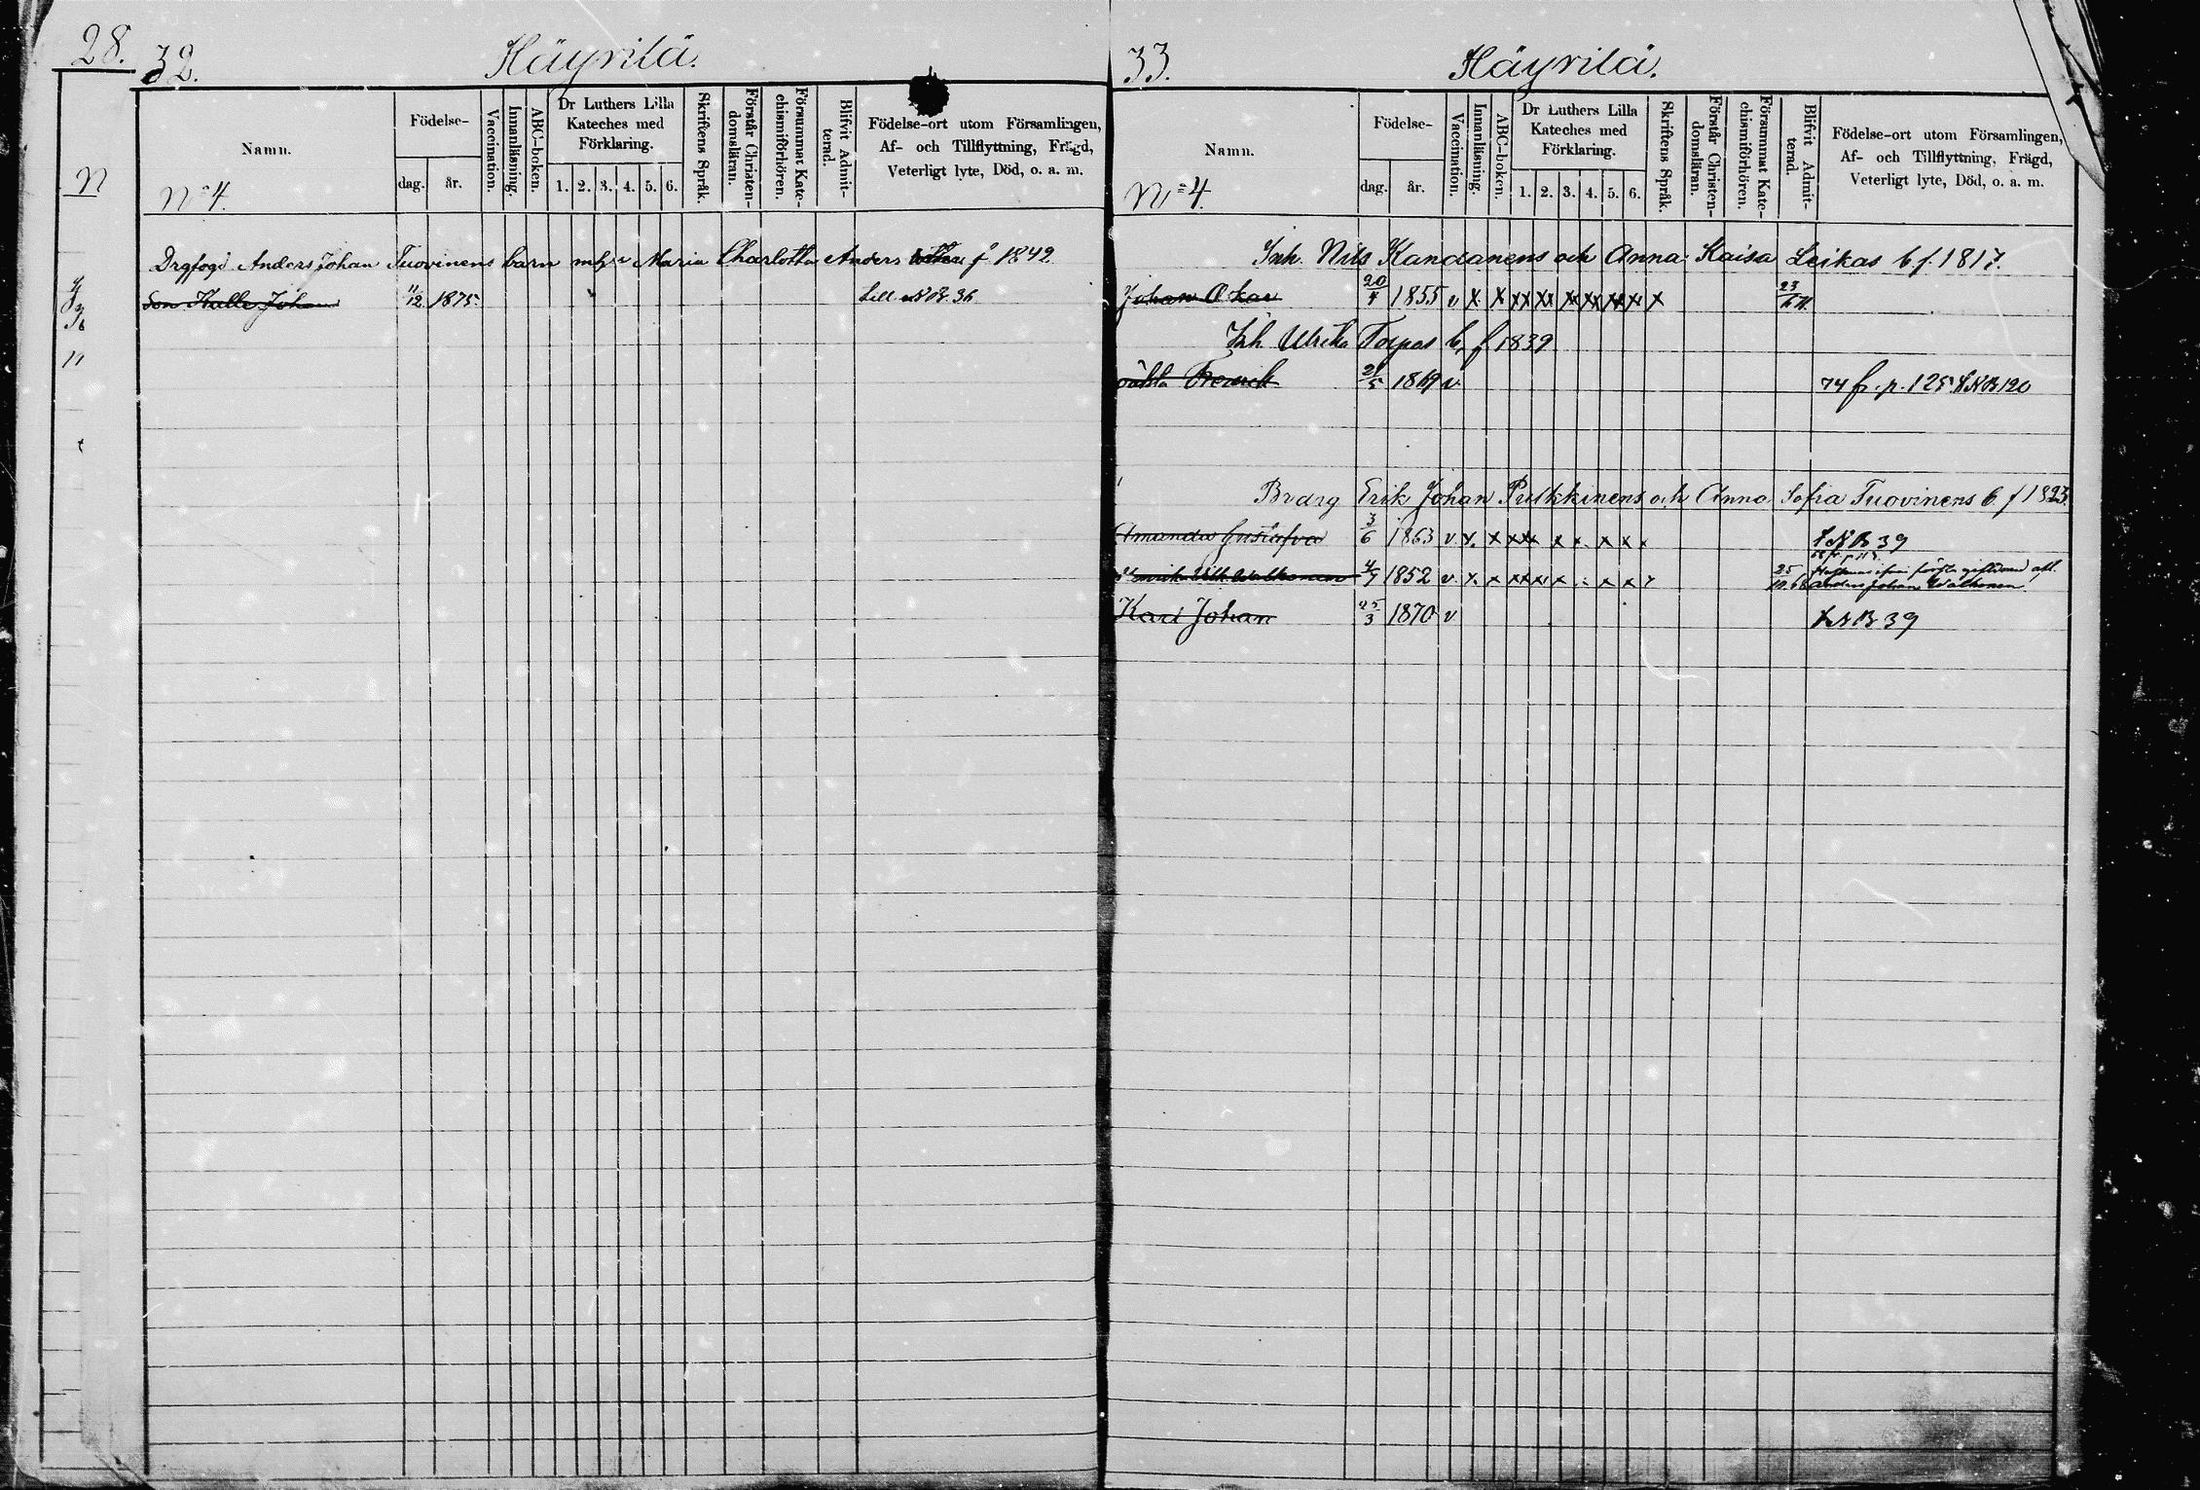 28.
32.
Häyrilä.
Namn.
Födelse-
dag.
år.
Vaccination.
Innanläsning.
ABC-boken.
Dr Luthers Lilla
Kateches med
Förklaring.
1. 2. 3. 4. 5. 6.
Skriftens Språk.
Förstår Christen-
domsläran.
Försummat Kate-
chismiförhören.
Blifvit Admit-
terad.
Födelse-ort utom Församlingen,
Af- och Tillflyttning, Frägd,
Veterligt lyte, Död, o. a. m.
N
N:o 4.
Drgfogd Anders Johan Tuovinens barn m h u Maria Charlotta Anders f 1842
Son Kalle Johan 11/12 1875 36
33.
Häyrilä.
Namn.
Födelse-
dag.
år.
Vaccination.
Innanläsning.
ABC-boken.
Dr Luthers Lilla
Kateches med
Förklaring.
1. 2. 3. 4. 5. 6.
Skriftens Språk.
Förstår Christen-
domsläran.
Försummat Kate-
chismiförhören.
Blifvit Admit-
terad.
Födelse-ort utom Församlingen,
Af- och Tillflyttning, Frägd,
Veterligt lyte, Död, o. a. m.
N:o 4.
Inh. Nils Kandanens och Anna Kaisa Leikas b f. 1817.
Johan Oskar 20/4 1855 v x x xx xx xx xx xx xx x
Inh Ulrika Torpas b, f 1839
21/5 1869 v. 74 fr. p. 125 LNB 120
Brarg Erik Johan Pulkkinens och Anna Sofia Tuovinens b f 1823.
Amanda Gustafva 3/6 1863 v. x. x xxx x x. x x x LNB 39
4/7 1852 v. x. x xxx x x x x 25
Anders Johan Walkonen
Karl Johan 25/3 1870 v LNB 39